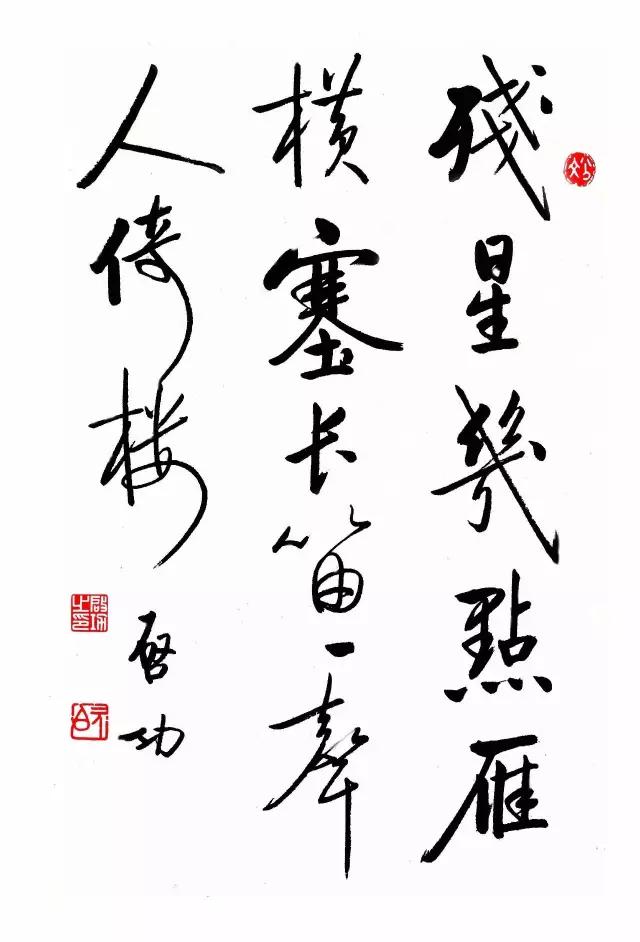 殘星幾點雁
橫塞长笛一聲
人倚楼
启功